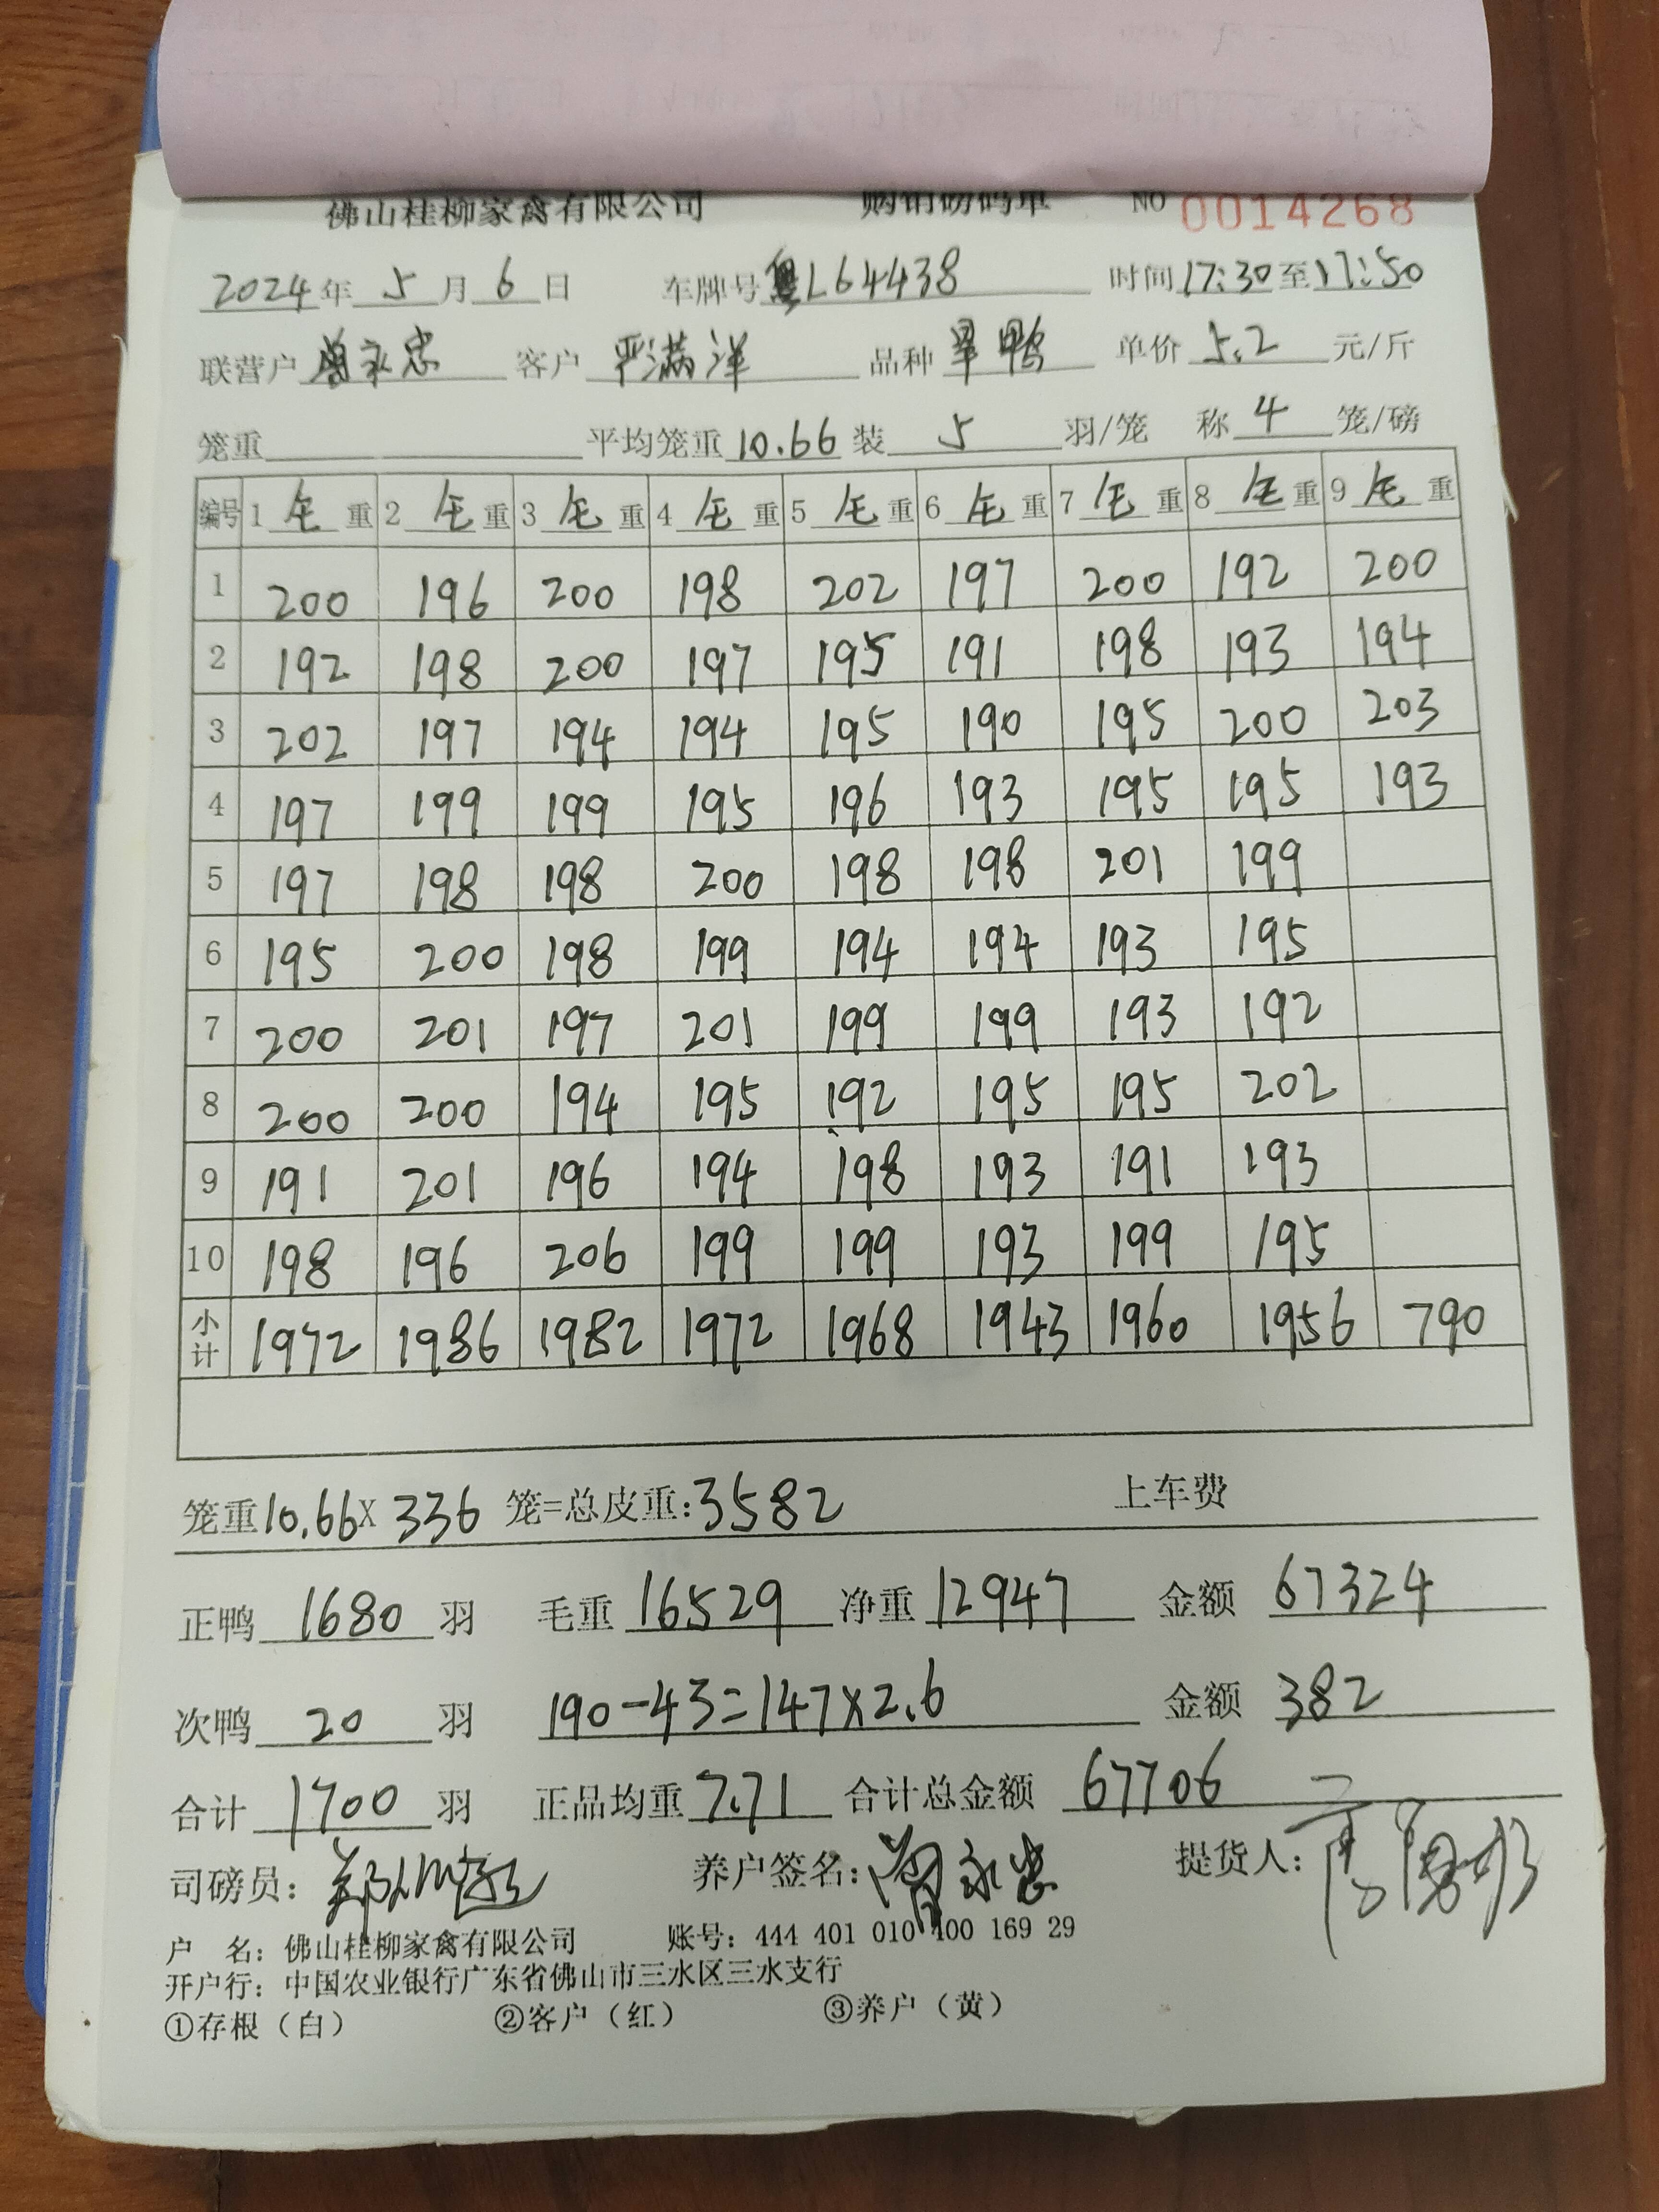 佛山桂柳家禽有限公司 购销磅码单 NO 0014268
2024年 5月 6日 车牌号 粤L64438 时间17:30至17:50
联营户 曾永忠 客户 严满洋 品种 旱鸭 单价 5.2 元/斤
笼重 平均笼重 10.66 装 5 羽/笼 称 4 笼/磅
编号 1 毛重 2 毛重 3 毛重 4 毛重 5 毛重 6 毛重 7 毛重 8 毛重 9 毛重
1 200 196 200 198 202 197 200 192 200
2 192 198 200 197 195 191 198 193 194
3 202 197 194 194 195 190 195 200 203
4 197 199 199 195 196 193 195 195 193
5 197 198 198 200 198 198 201 199
6 195 200 198 199 194 194 193 195
7 200 201 197 201 199 199 193 192
8 200 200 194 195 192 195 195 202
9 191 201 196 194 198 193 191 193
10 198 196 206 199 199 193 199 195
小计 1972 1986 1982 1972 1968 1943 1960 1956 790
笼重10.66X 336 笼=总皮重:3582 上车费
正鸭 1680 羽 毛重 16529 净重 12947 金额 67324
次鸭 20 羽 190-43=147×2.6 金额 382
合计 1700 羽 正品均重 7.71 合计总金额 67706
司磅员: 养户签名: 曾永忠 提货人:
户 名: 佛山桂柳家禽有限公司 账号: 444 401 010 400 169 29
开户行: 中国农业银行广东省佛山市三水区三水支行
①存根（白） ②客户（红） ③养户（黄）